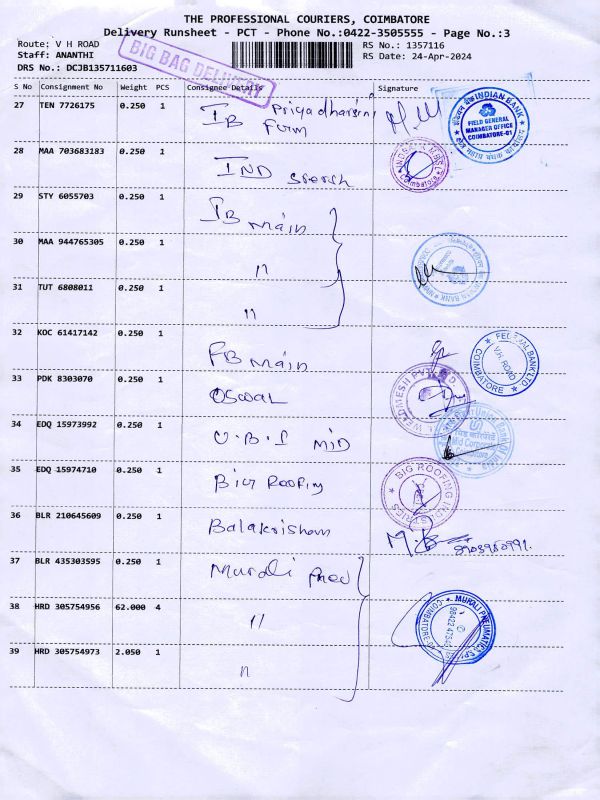 THE PROFESSIONAL COURIERS, COIMBATORE
Delivery Runsheet - PCT - Phone No.:0422-3505555 - Page No.:3
Route: V H ROAD RS No.: 1357116
Staff: ANANTHI RS Date: 24-Apr-2024
DRS No.: DCJB135711603
BIG BAG DELIVERY
S No Consignment No Weight PCS Consignee Details Signature
27 TEN 7726175 0.250 1 IB Priyadharsini
Form
INDIAN BANK
FIELD GENERAL
MANAGER OFFICE
COIMBATORE-01
28 MAA 703683183 0.250 1 IND
Coimbatore
29 STY 6055703 0.250 1 IB Main
30 MAA 944765305 0.250 1 "
INDIAN BANK
31 TUT 6808011 0.250 1 "
32 KOC 61417142 0.250 1 FB Main
FEDERAL BANK LTD
V.H. ROAD
COIMBATORE
33 PDK 8303070 0.250 1 OSWAL
WELDMESH PVT LTD
34 EDQ 15973992 0.250 1 U.B.I MID
Union Bank of
Mid Corporate
Coimbatore
35 EDQ 15974710 0.250 1 Big Roofing
BIG ROOFING INDUSTRIES
36 BLR 210645609 0.250 1 Balakrishnan
37 BLR 435303595 0.250 1 Murali Pneu
38 HRD 305754956 62.000 4 "
MURALI PNEUMATICS
COIMBATORE
39 HRD 305754973 2.050 1 "